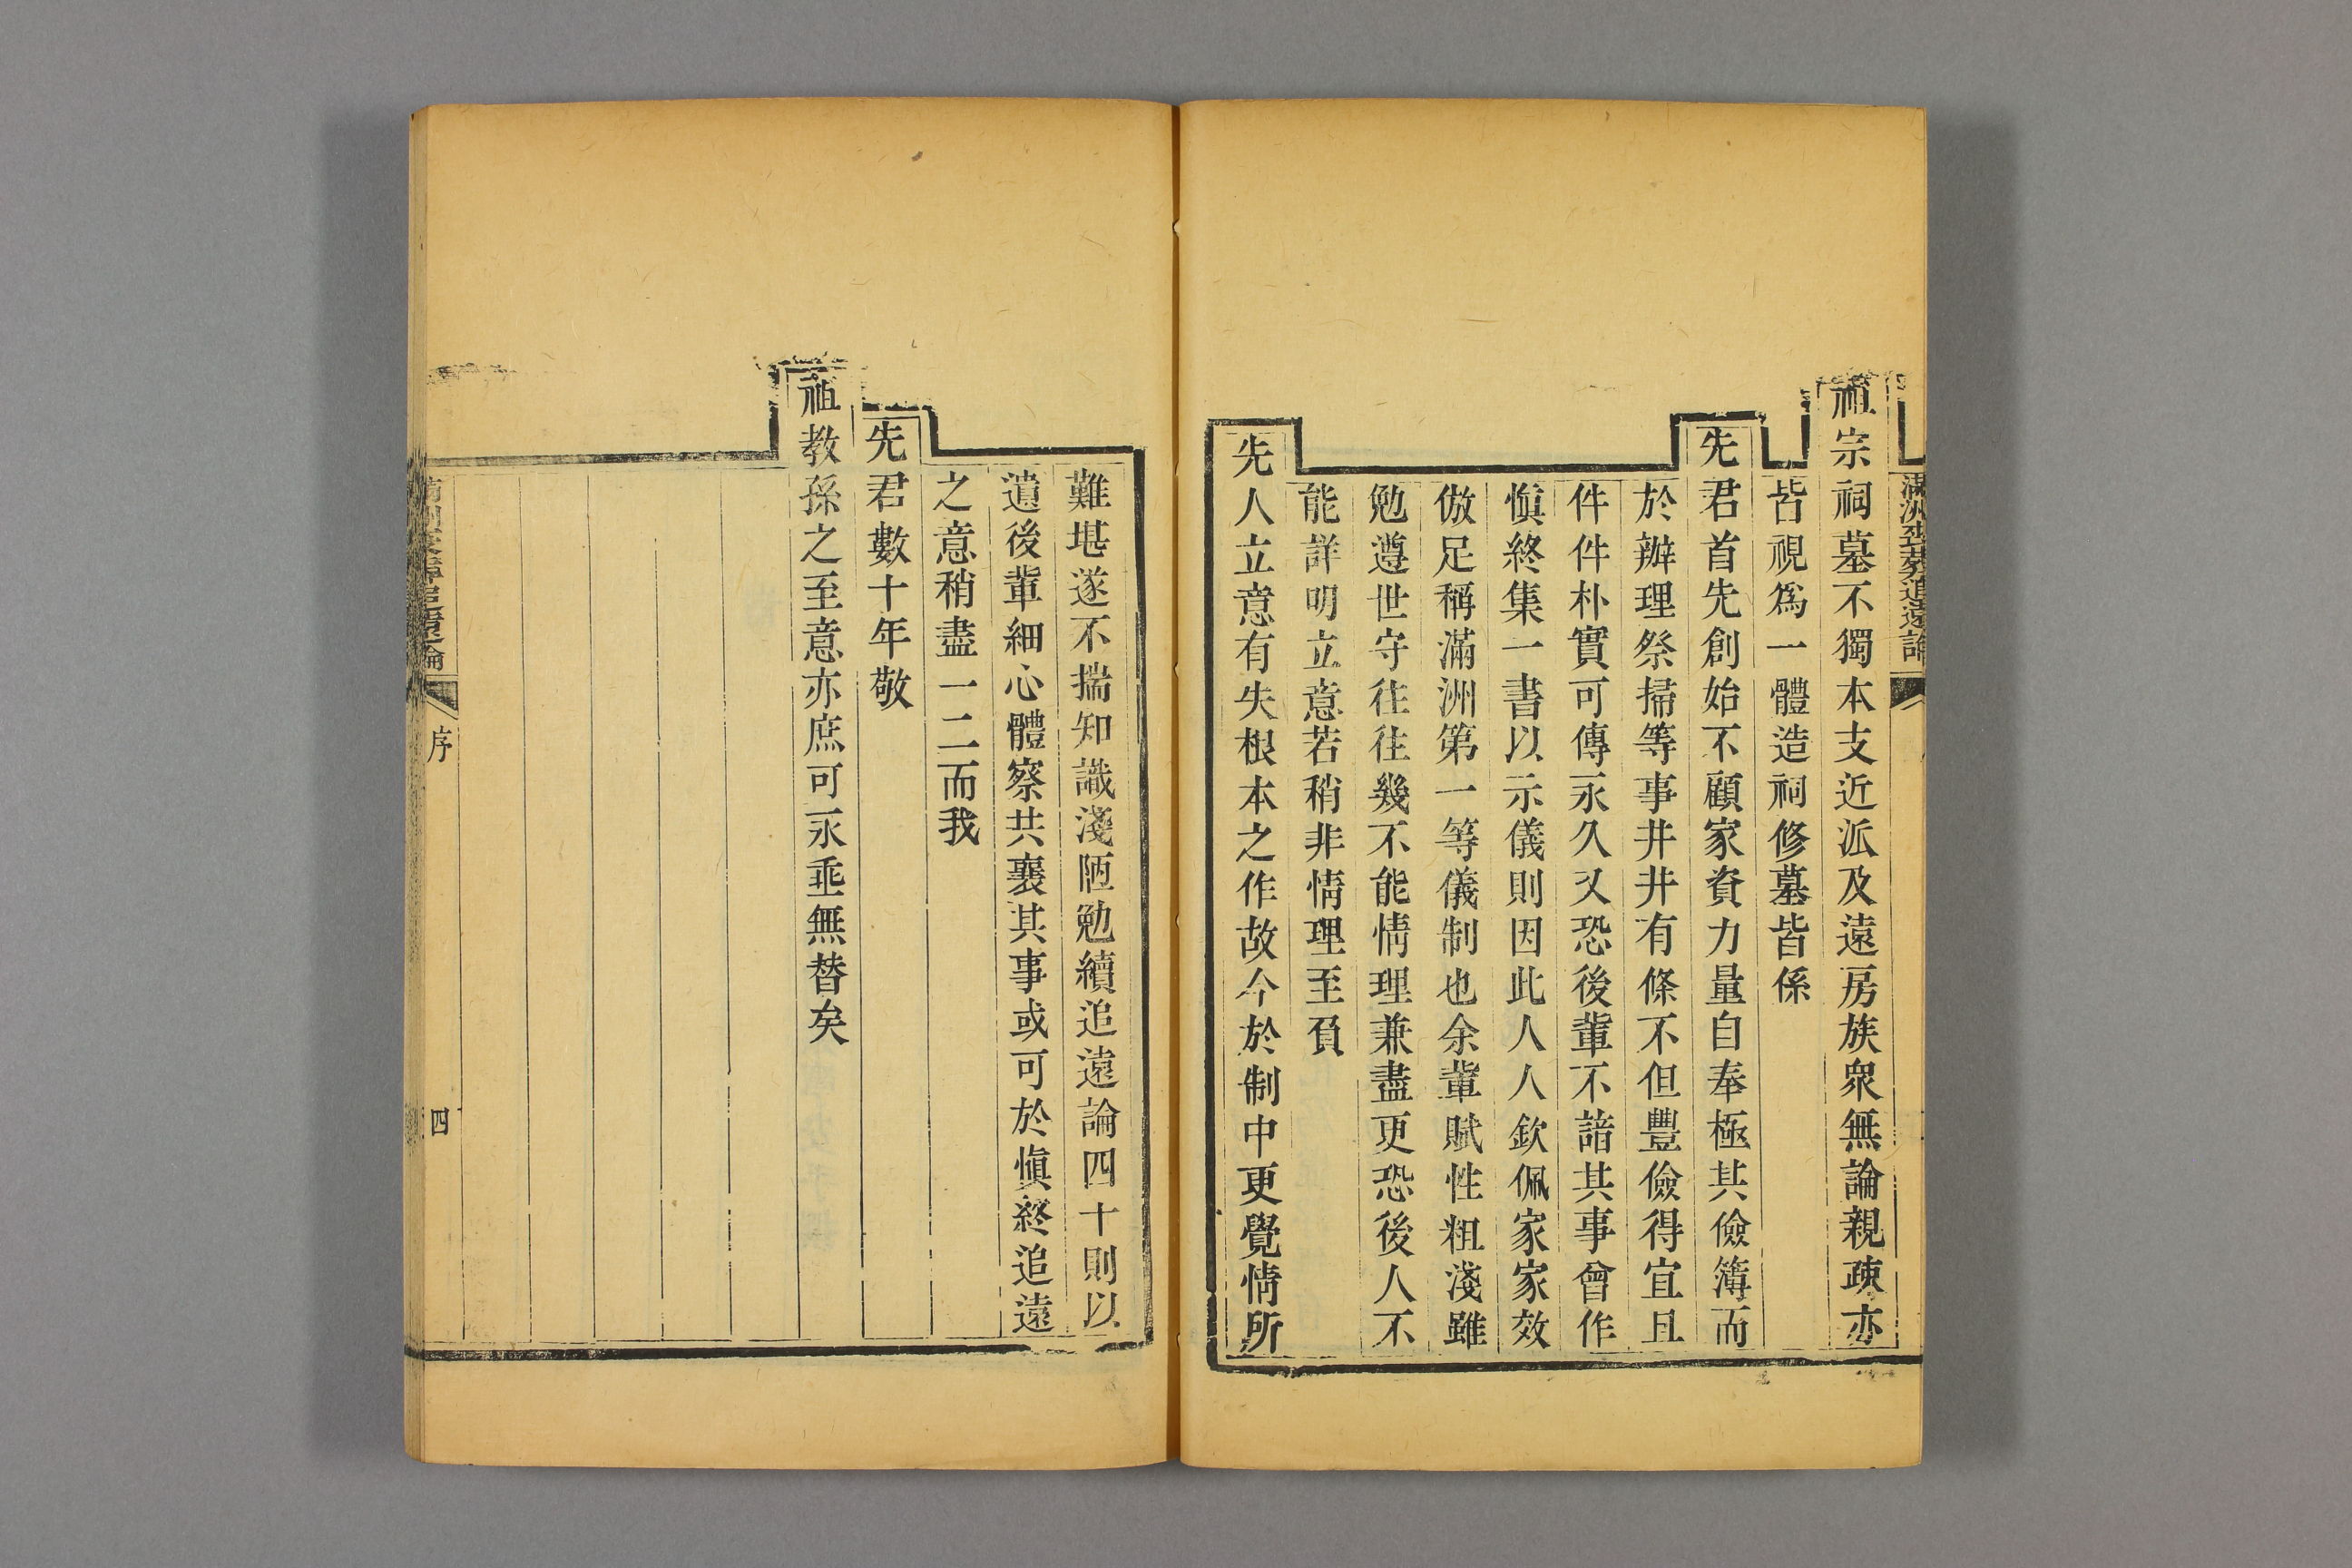 滿洲喪葬追遠論
祖宗祠墓不獨本支近派及遠房族衆無論親疎亦
皆視爲一體造祠修墓皆係
先君首先創始不顧家資力量自奉極其儉簿而
於辦理祭掃等事井井有條不但豐儉得宜且
件件朴實可傳永久又恐後輩不諳其事曾作
愼終集一書以示儀則因此人人欽佩家家效
倣足稱滿洲第一等儀制也余輩賦性粗淺雖
勉遵世守往往幾不能情理兼盡更恐後人不
能詳明立意若稍非情理至負
先人立意有失根本之作故今於制中更覺情所
難堪遂不揣知識淺陋勉續追遠論四十則以
遺後輩細心體察共襄其事或可於愼終追遠
之意稍盡一二而我
先君數十年敬
祖教孫之至意亦庶可永垂無替矣
序
四